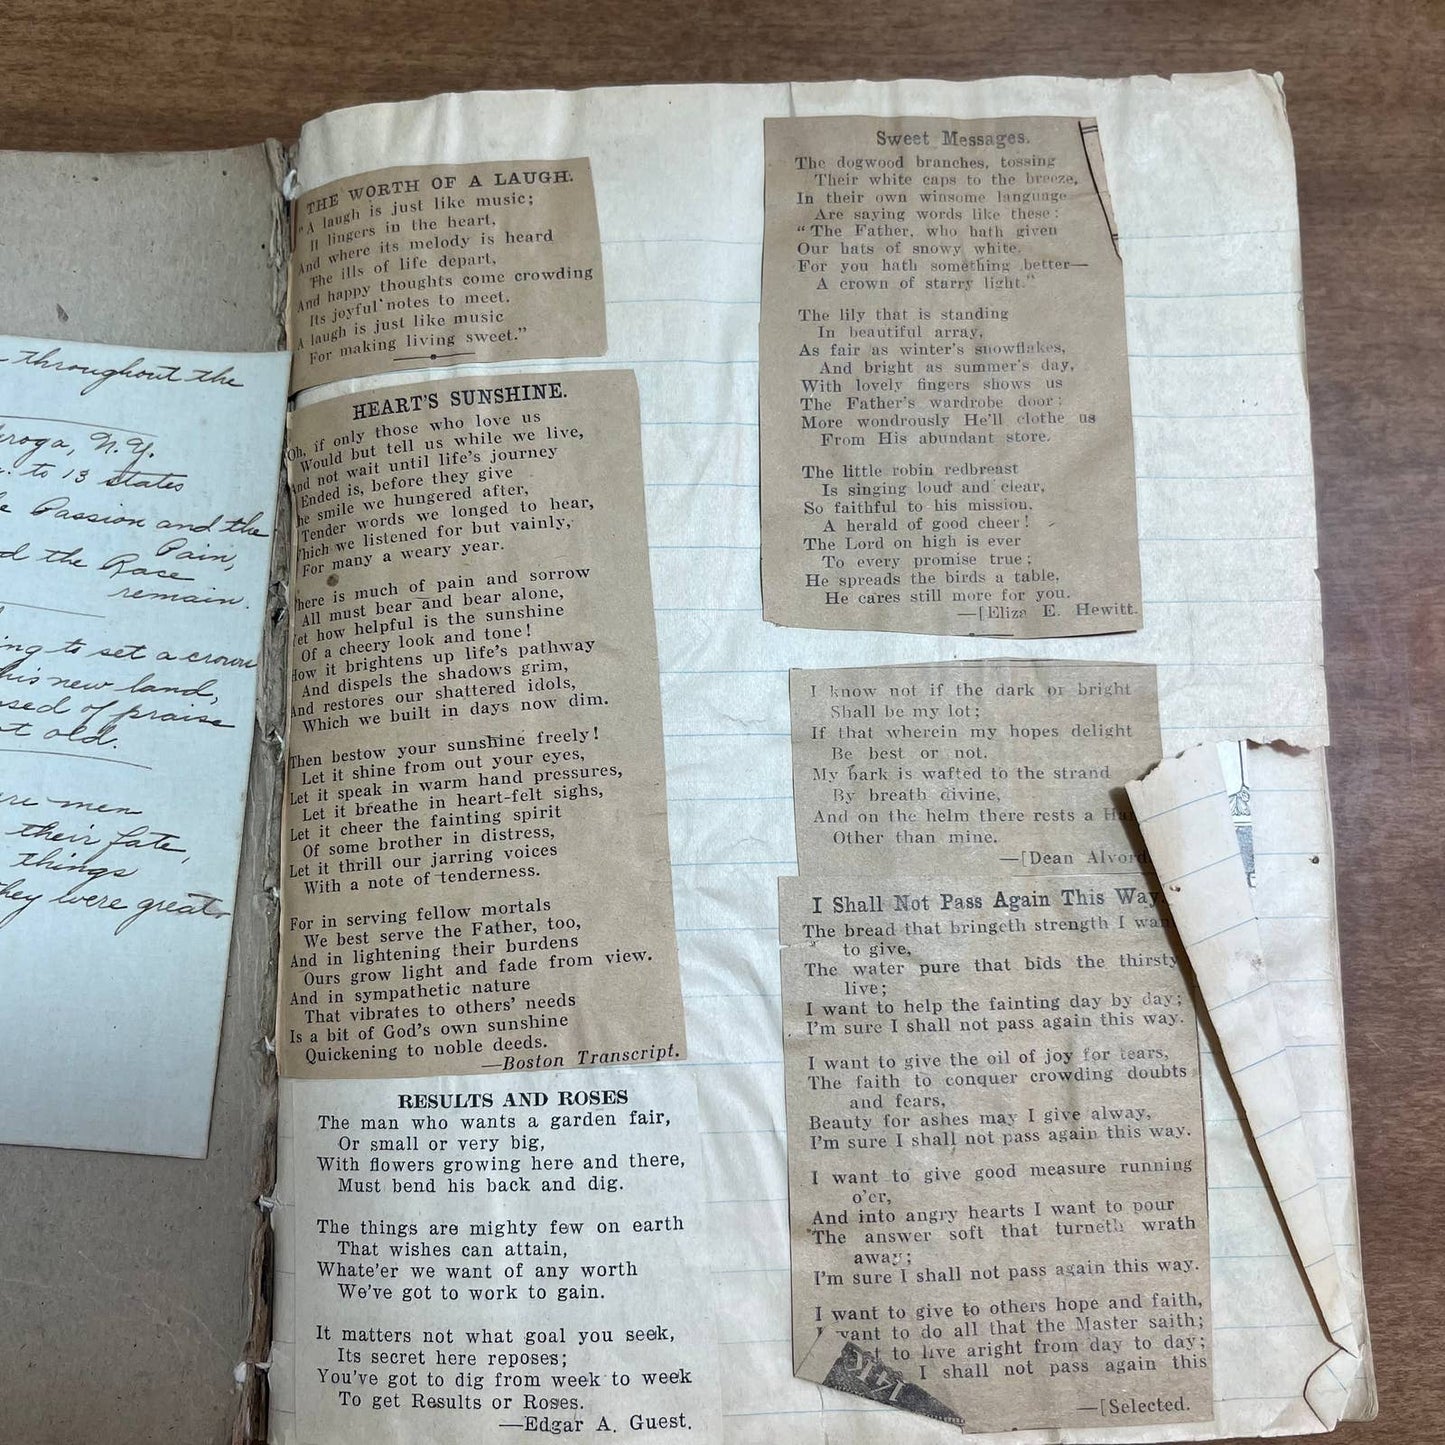 throughout the
N.Y.
to 13 states
Passion and the
Pain,
the Race
remain.
to set a crown
his new land,
of praise
old.
men
their fate,
things
they were great
THE WORTH OF A LAUGH.
"A laugh is just like music;
It lingers in the heart,
And where its melody is heard
The ills of life depart,
And happy thoughts come crowding
Its joyful notes to meet.
A laugh is just like music
For making living sweet."
HEART'S SUNSHINE.
Oh, if only those who love us
Would but tell us while we live,
And not wait until life's journey
Ended is, before they give
he smile we hungered after,
Tender words we longed to hear,
Which we listened for but vainly,
For many a weary year.
here is much of pain and sorrow
All must bear and bear alone,
Yet how helpful is the sunshine
Of a cheery look and tone!
How it brightens up life's pathway
And dispels the shadows grim,
And restores our shattered idols,
Which we built in days now dim.
Then bestow your sunshine freely!
Let it shine from out your eyes,
Let it speak in warm hand pressures,
Let it breathe in heart-felt sighs,
Let it cheer the fainting spirit
Of some brother in distress,
Let it thrill our jarring voices
With a note of tenderness.
For in serving fellow mortals
We best serve the Father, too,
And in lightening their burdens
Ours grow light and fade from view.
And in sympathetic nature
That vibrates to others' needs
Is a bit of God's own sunshine
Quickening to noble deeds.
—Boston Transcript.
RESULTS AND ROSES
The man who wants a garden fair,
Or small or very big,
With flowers growing here and there,
Must bend his back and dig.
The things are mighty few on earth
That wishes can attain,
Whate'er we want of any worth
We've got to work to gain.
It matters not what goal you seek,
Its secret here reposes;
You've got to dig from week to week
To get Results or Roses.
—Edgar A. Guest.
Sweet Messages.
The dogwood branches, tossing
Their white caps to the breeze,
In their own winsome language
Are saying words like these:
"The Father, who hath given
Our hats of snowy white,
For you hath something better—
A crown of starry light."
The lily that is standing
In beautiful array,
As fair as winter's snowflakes,
And bright as summer's day,
With lovely fingers shows us
The Father's wardrobe door;
More wondrously He'll clothe us
From His abundant store.
The little robin redbreast
Is singing loud and clear,
So faithful to his mission,
A herald of good cheer!
The Lord on high is ever
To every promise true;
He spreads the birds a table,
He cares still more for you.
—[Eliza E. Hewitt.
I know not if the dark or bright
Shall be my lot;
If that wherein my hopes delight
Be best or not.
My bark is wafted to the strand
By breath divine,
And on the helm there rests a
Other than mine.
—[Dean Alvord
I Shall Not Pass Again This Way.
The bread that bringeth strength I want
to give,
The water pure that bids the thirsty
live;
I want to help the fainting day by day;
I'm sure I shall not pass again this way.
I want to give the oil of joy for tears,
The faith to conquer crowding doubts
and fears,
Beauty for ashes may I give alway,
I'm sure I shall not pass again this way.
I want to give good measure running
o'er,
And into angry hearts I want to pour
The answer soft that turneth wrath
away;
I'm sure I shall not pass again this way.
I want to give to others hope and faith,
I want to do all that the Master saith;
to live aright from day to day;
I shall not pass again this
—[Selected.
14K